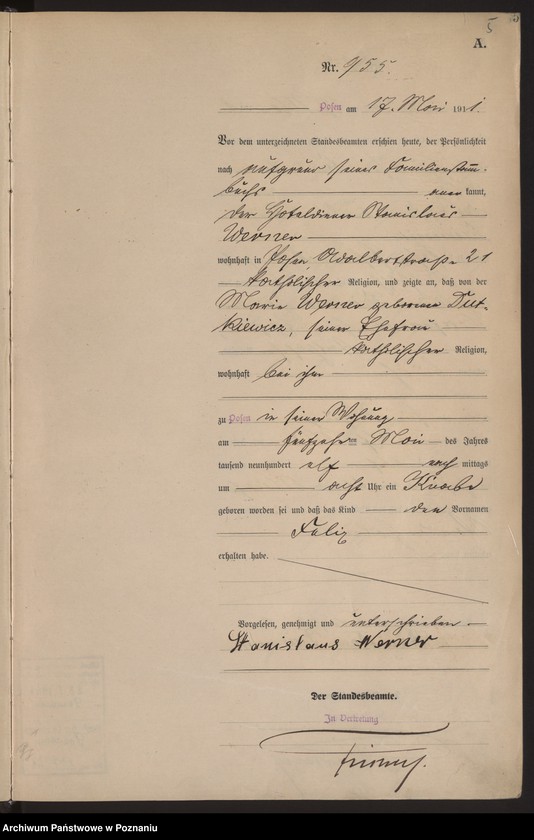 5
A.
Nr. 955.
Posen am 17. Mai 1911.
Vor dem unterzeichneten Standesbeamten erschien heute, der Persönlichkeit
nach aufgrund seines Familienstamm-
buchs anerkannt,
der Hoteldiener Stanislaus
Werner
wohnhaft in Posen, Adalbertstraße 21
katholischer Religion, und zeigte an, daß von der
Marie Werner geborenen Dut-
kiewicz, seiner Ehefrau
katholischer Religion,
wohnhaft bei ihm
zu Posen in seiner Wohnung
am fünfzehnten Mai des Jahres
tausend neunhundert elf nach mittags
um acht Uhr ein Knabe
geboren worden sei und daß das Kind den Vornamen
Felix
erhalten habe.
Vorgelesen, genehmigt und unterschrieben
Stanislaus Werner
Der Standesbeamte.
In Vertretung
Archiwum Państwowe w Poznaniu